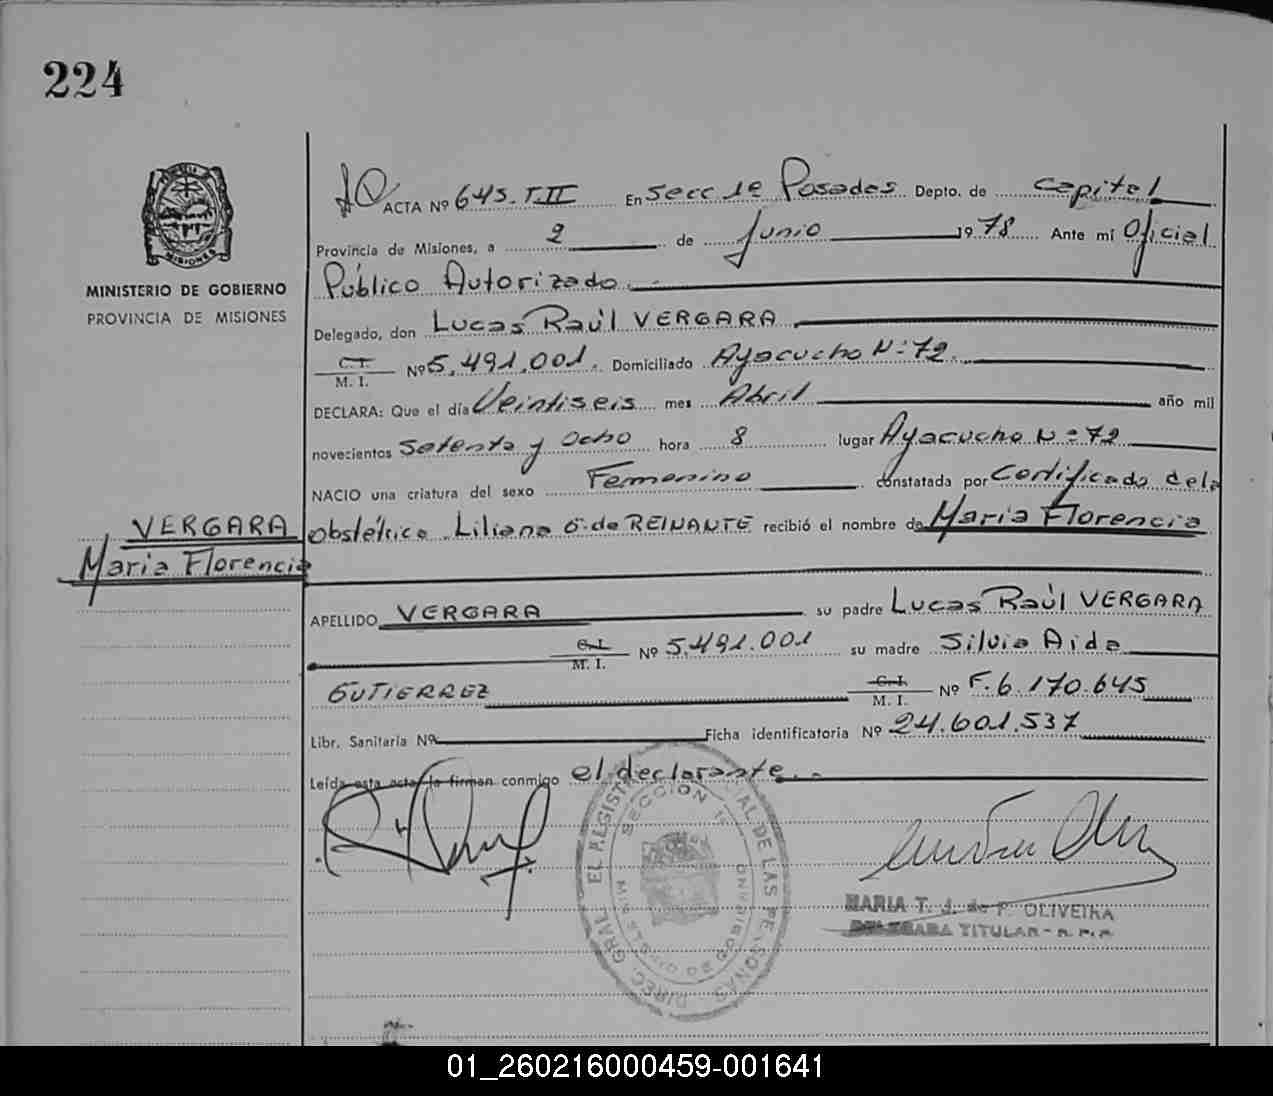 224
ACTA Nº 645. T.II En Secc 1º Posadas Depto. de Capital
Provincia de Misiones, a 2 de Junio 1978 Ante mi Oficial
MINISTERIO DE GOBIERNO
PROVINCIA DE MISIONES
Público Autorizado.
Delegado, don Lucas Raúl VERGARA
C.I.
M. I. Nº 5.491.001. Domiciliado Ayacucho Nº 72
DECLARA: Que el día Veintiseis mes Abril año mil
novecientos Setenta y Ocho hora 8 lugar Ayacucho Nº 72
NACIO una criatura del sexo Femenino constatada por Certificado de la
VERGARA
Maria Florencia
Obstétrica Liliana G. de REINANTE recibió el nombre de Maria Florencia
APELLIDO VERGARA su padre Lucas Raúl VERGARA
C.I.
M. I. Nº 5.491.001 su madre Silvia Aida
GUTIERREZ C.I.
M. I. Nº F. 6.170.645
Libr. Sanitaria Nº Ficha identificatoria Nº 24.601.537
Leída esta acta la firman conmigo el declarante.
SECCION 1ª
MARIA T. J. de P. OLIVEIRA
DELEGADA TITULAR - R. P. P.
01_260216000459-001641